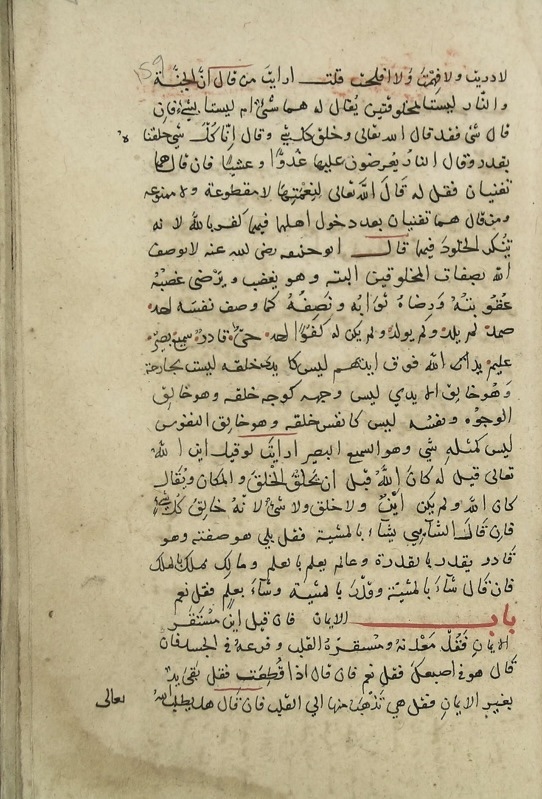 159
لا دريت ولا فهمت ولا افلحت قلت ارايت من قال ان الجنة
والنار ليستا مخلوقتين يقال له هما شئ ام ليستا بشئ فان
قال شئ فقد قال الله تعالى وخلق كل شئ وقال انا كل شئ خلقنا ه
بقدر وقال النار يعرضون عليها غدوا وعشيا فان قال هما
تفنيان فقل له قال الله تعالى لنعمتها لا مقطوعة ولا ممنوعه
ومن قال هما تفنيان بعد دخول اهلها فيهما كفر بالله لانه
ينكر الخلود فيها قال ابو حنيفه رضى الله عنه لا يوصف
الله بصفات المخلوقين البته وهو يغضب ويرضى غضبه
عقوبته ورضاه ثوابه ونصفه كما وصف نفسه احد
صمد لم يلد ولم يولد ولم يكن له كفوا احد حى قادر سميع بصير
عليم يد الله فوق ايديهم ليس كايد خلقه ليست بجارحة
وهو خالق الايدي ليس وجهه كوجه خلقه وهو خالق
الوجوه ونفسه ليس كانفس خلقه وهو خالق النفوس
ليس كمثله شي وهو السميع البصير ارايت لو قيل اين الله
تعالى قيل له كان الله قبل ان يخلق الخلق والمكان ويقال
كان الله ولم يكن اين ولا خلق ولا شئ لانه خالق كل شئ
فان قال الشآئي يشآء بالمشية فقل بلي هو صفته وهو
قادر بقدر بالقدرة وعالم يعلم بالعلم ومالك مملك بالملك
فان قال شآء بالمشية وقدر بالمشية وشآء بعلم فقل نعم
باب الايمان فان قيل اين مستقر
الايمان فقل معدنه ومستقره القلب وفرعه في الجسد فان
قال هو في اصبعك فقل نعم فان قال اذا قطعت فقل بقى يد
بغير الايمان فقل هي تذهب منها الي القلب فان قال هل يطلب الله
تعالى